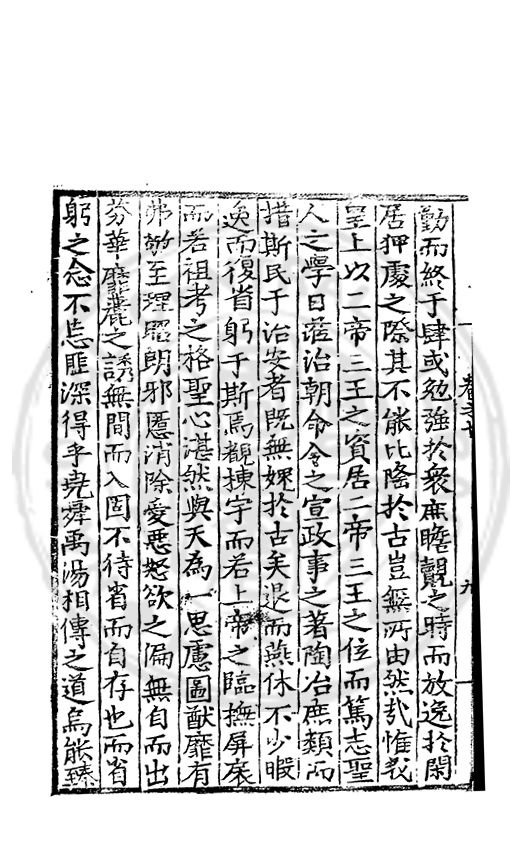 勤而終于肆或勉強於衆庶瞻覩之時而放逸於閑
居狎處之際其不能比隆於古豈無所由然哉惟我
皇上以二帝三王之資居二帝三王之位而篤志聖
人之學日蒞治朝命令之宣政事之著陶冶庶類而
措斯民于治安者既無媿於古矣退而燕休不少暇
逸而復省躬于斯焉觀棟宇而若上帝之臨撫屏扆
而若祖考之格聖心湛然與天為一思慮圖猷靡有
弗敬至理昭朗邪慝消除愛惡怒欲之偏無自而出
芬華靡麗之誘無間而入固不待省而自存也而省
躬之念不忘匪深得乎堯舜禹湯相傳之道烏能臻
卷之十
九